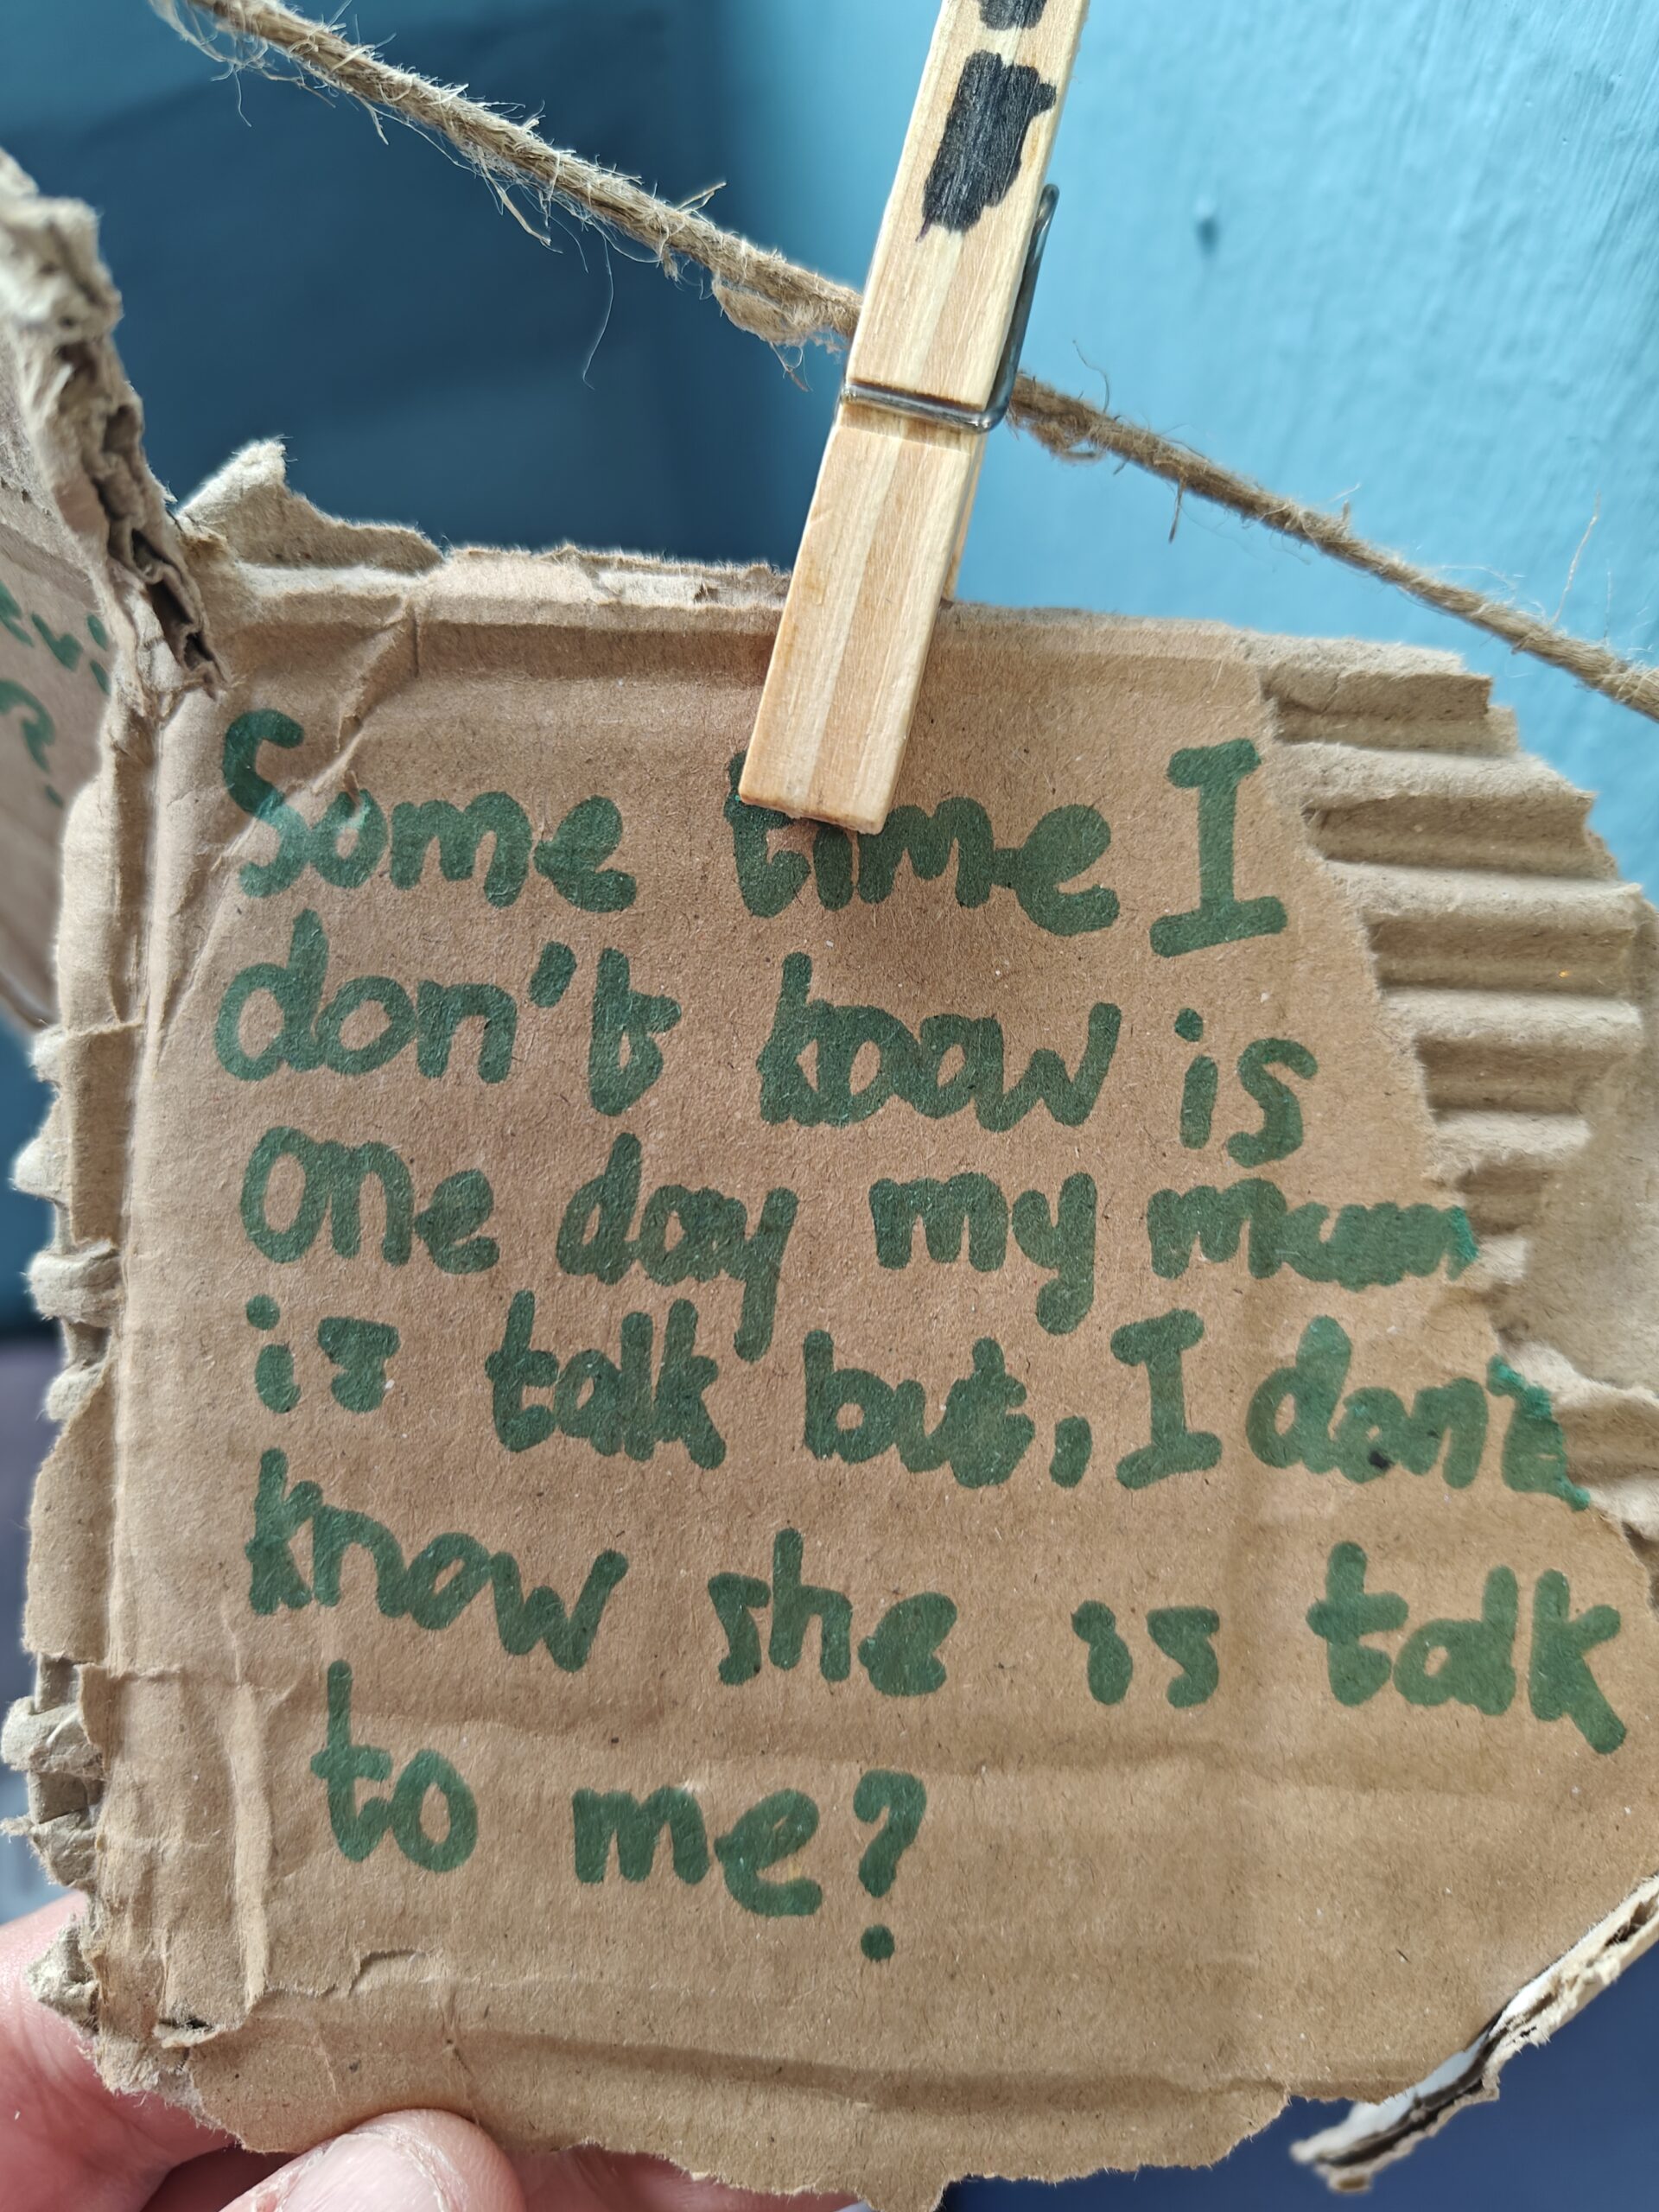 Some time I
don't know is
one day my mum
is talk but, I don't
know she is talk
to me?